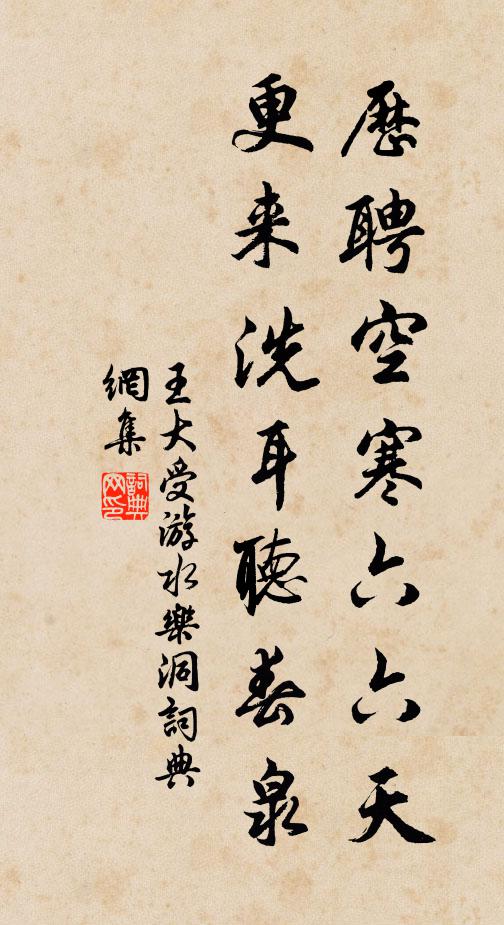 歷聘空寒六六天
更来洗耳聽春泉
王大受游水樂洞詞典
網集
詞典網印